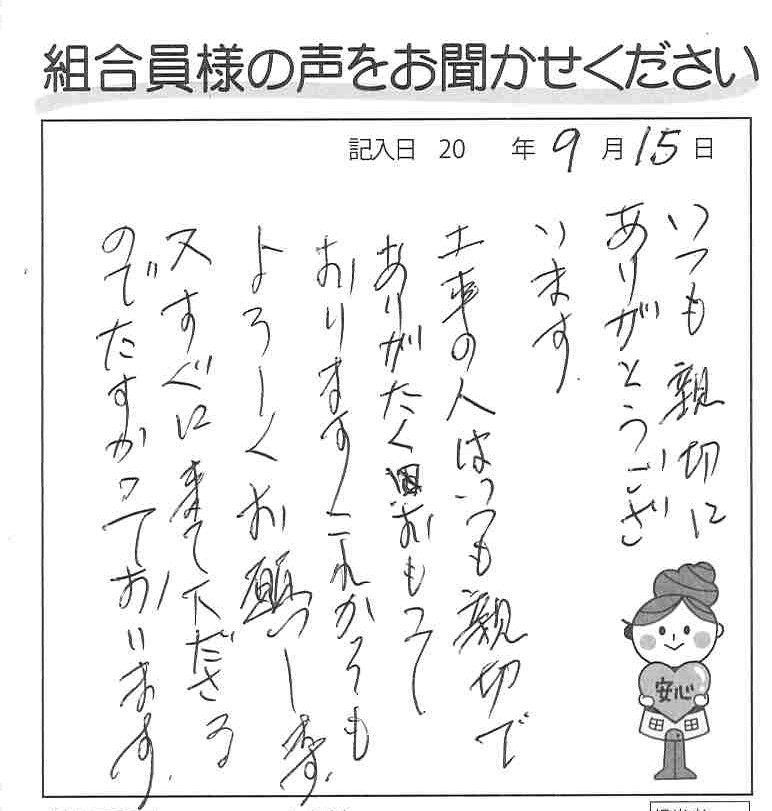 組合員様の声をお聞かせください
記入日 20 年 9 月 15 日
いつも親切に
ありがとうござ
います
工事の人はいつも親切で
ありがたくおもって
おります これからも
よろしくお願いします
又すぐに来て下ださる
のでたすかっております
安心